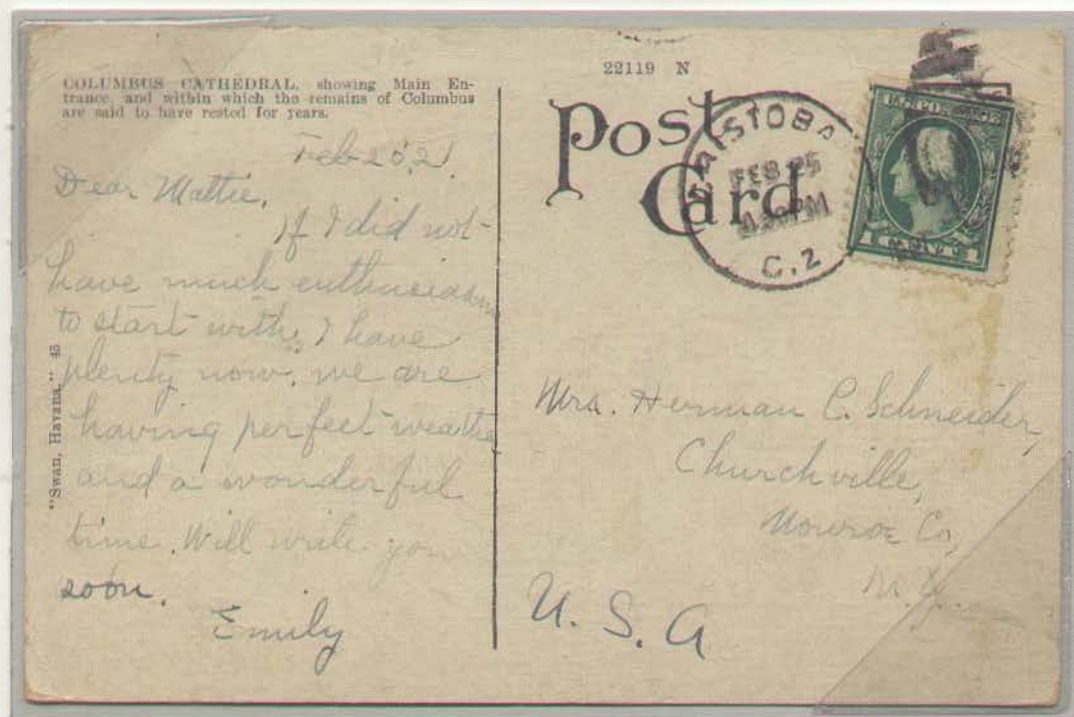 COLUMBUS CATHEDRAL, showing Main En-
trance, and within which the remains of Columbus
are said to have rested for years.
Dear Mattie,
If I did not
have much enthusiasm
to start with, I have
plenty now, we are
having perfect weather
and a wonderful
time. Will write you
soon.
Emily
"Swan, Havana." 45
22119 N
Post
Card
CRISTOBA
FEB 25
PM
C.Z
Mrs. Herman C. Schneider,
Churchville,
Monroe Co,
N.Y.
U. S. A